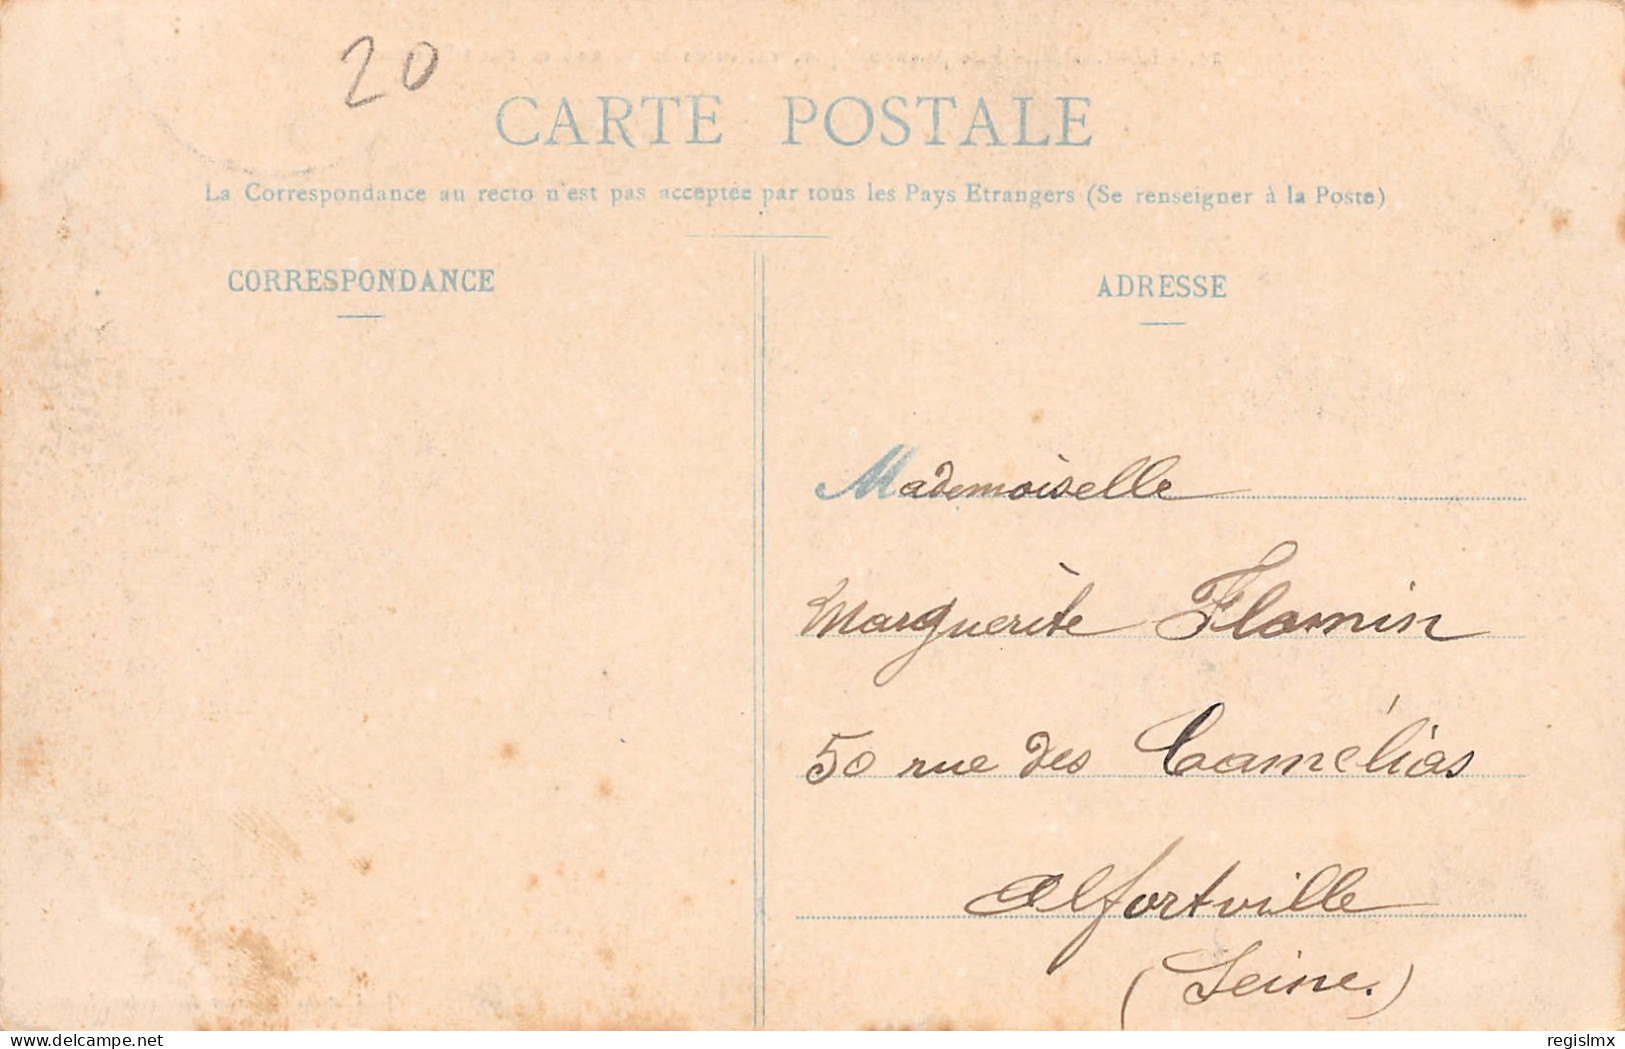 20
CARTE POSTALE
La Correspondance au recto n'est pas acceptée par tous les Pays Etrangers (Se renseigner à la Poste)
CORRESPONDANCE
ADRESSE
Mademoiselle
Marguerite Flamin
50 rue des Camélias
Alfortville
(Seine.)
www.delcampe.net
regislmx